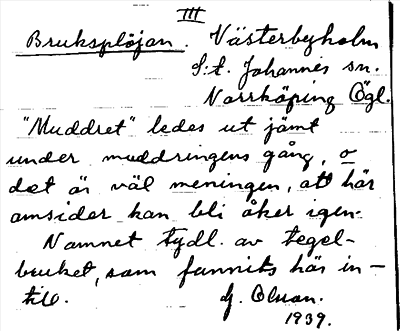 III
Bruksplöjan. Västerbyholm
S:t. Johannes sn.
Norrköping Ögl.
"Muddret" ledes ut jämt
under muddringens gång, o
det är väl meningen, att här
omsider kan bli åker igen.
Namnet tydl. av tegel-
bruket, som funnits här in-
till. G. Olson.
1939.